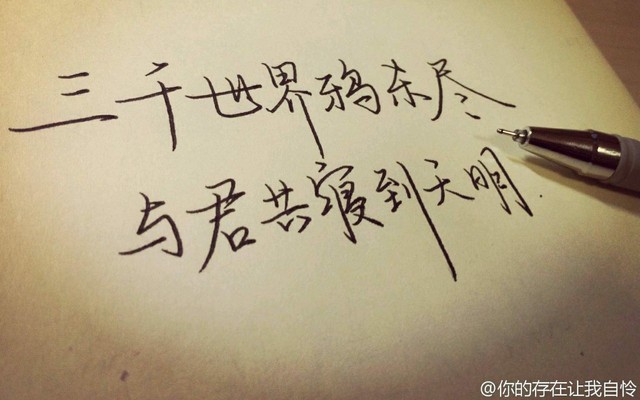 三千世界鸦杀尽
与君共寝到天明
@你的存在让我自怜